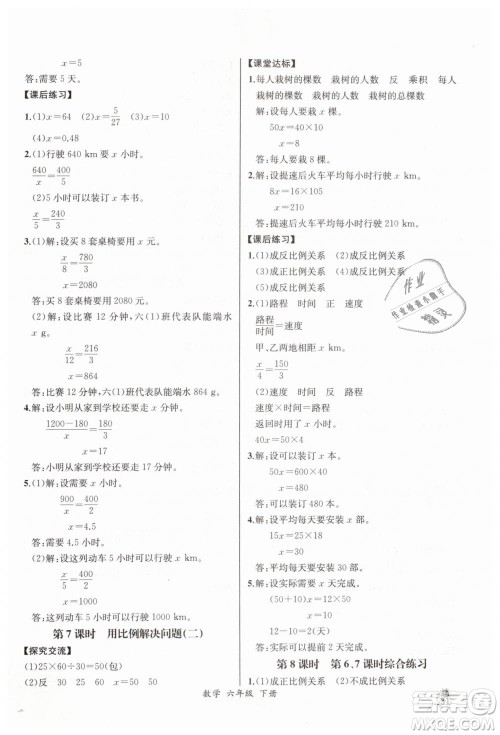 x=5
答:需要 5 小时。
【课后练习】
1.(1)x=64 (2)x=5/27 (3)x=10
(4)x=0.48
2.(1)行驶 640 km 要 x 小时。
640/x=400/5
(2)5 小时可以装订 x 本书。
x/5=240/3
3.(1)解:设买 8 套桌椅要用 x 元。
x/8=780/3
x=2080
答:买 8 套桌椅要用 2080 元。
(2)解:设比赛 12 分钟,六(1)班代表队能端水
x g。
x/12=216/3
x=864
答:比赛 12 分钟,六(1)班代表队能端水 864 g。
4.解:设小明从家到学校还要走 x 分钟。
1200-180/x=180/3
x=17
答:小明从家到学校还要走 17 分钟。
5.(1)解:设需要 x 小时。
900/x=400/2
x=4.5
答:需要 4.5 小时。
(2)解:设这列动车 5 小时可行驶 x km。
x/5=400/2
x=1000
答:这列动车 5 小时可行驶 1000 km。
第 7 课时 用比例解决问题(二)
【探究交流】
(1)25×60÷30=50
(2)反 30 25 60 50
【课堂达标】
1.每人栽树的棵数 栽树的人数 反 乘积 每人
栽树的棵数 栽树的人数 栽树的总棵数
解:设每人要栽 x 棵。
50x=40×10
x=8
答:每人要栽 8 棵。
2.解:设提速后火车平均每小时行驶 x km。
8x=16×105
x=210
答:提速后火车平均每小时行驶 210 km。
【课后练习】
1.(1)成反比例关系 (2)成反比例关系
(3)成正比例关系 (4)成反比例关系
2.(1)路程 时间 正 速度
路程/时间=速度
甲、乙两地相距 x km。
x/4=150/3
(2)速度 时间 反 路程
速度×时间=路程
返回时用了 x 小时。
60x=50×4
3.解:设可以装订 x 本。
50x=40×600
x=480
答:可以装订 480 本。
4.解:设平均每天要安装 x 部。
12x=24×15
x=30
答:平均每天要安装 30 部。
5.解:设实际需要 x 天完成。
(20-8)x=20×30
x=50
答:实际需要 50 天完成。
第 8 课时 第 6、7 课时综合练习
1.(1)成正比例关系 (2)不成比例关系
数学 六年级 下册
作业
作业检查小帮手
精灵